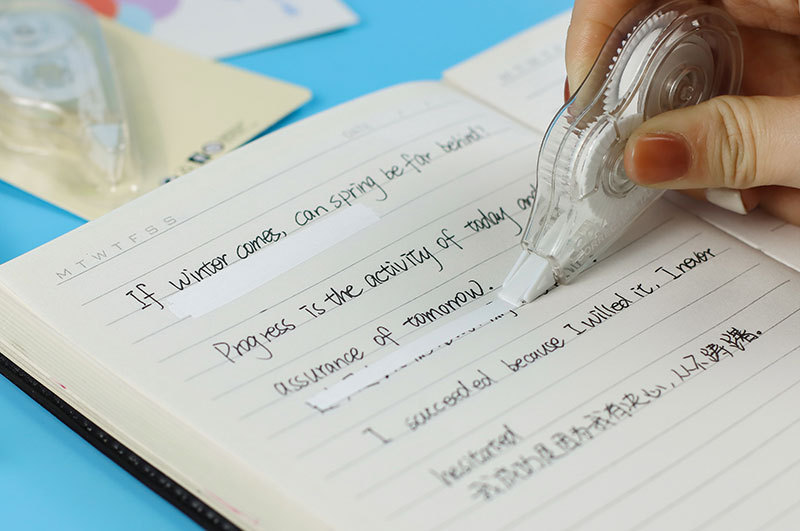 DATE
M T W T F S S
If winter comes, can spring be far behind?
Progress is the activity of today and
assurance of tomorrow.
I succeeded because I willed it, I never
hesitated
我成功是因为我有决心,从不踌躇。